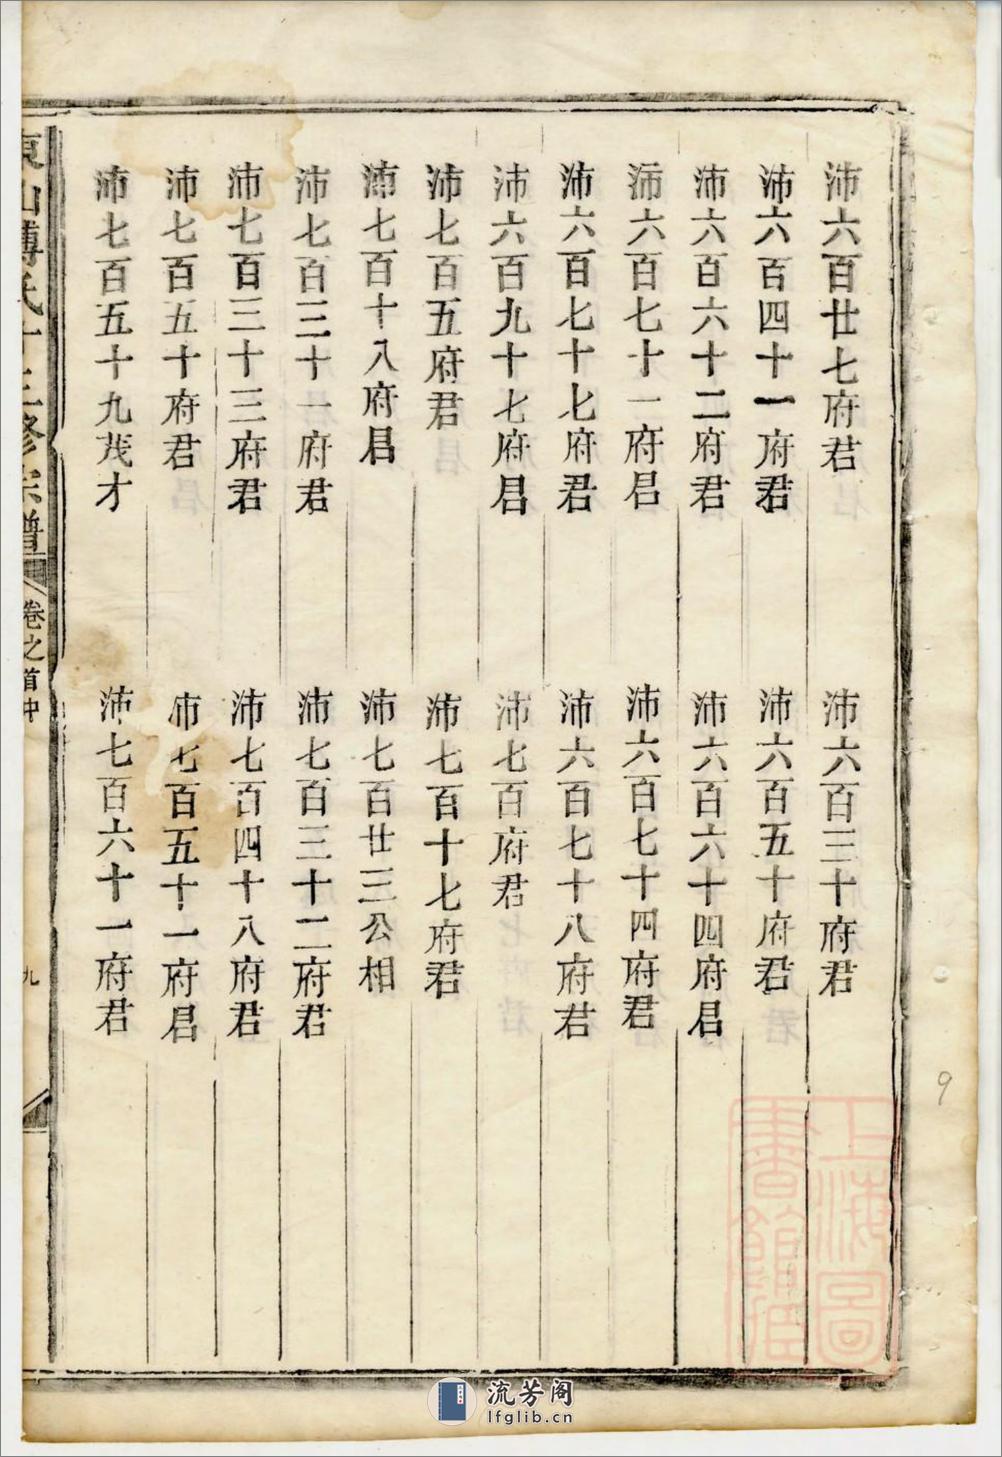 沛六百廿七府君
沛六百三十府君
沛六百四十一府君
沛六百五十府君
沛六百六十二府君
沛六百六十四府君
沛六百七十一府君
沛六百七十四府君
沛六百七十七府君
沛六百七十八府君
沛六百九十七府君
沛七百府君
沛七百五府君
沛七百十七府君
沛七百十八府君
沛七百廿三公相
沛七百三十一府君
沛七百三十二府君
沛七百三十三府君
沛七百四十八府君
沛七百五十府君
沛七百五十一府君
沛七百五十九茂才
沛七百六十一府君
東山傅氏十三修宗譜
卷之首中
九
上海圖書館藏
9
流芳阁
lfglib.cn